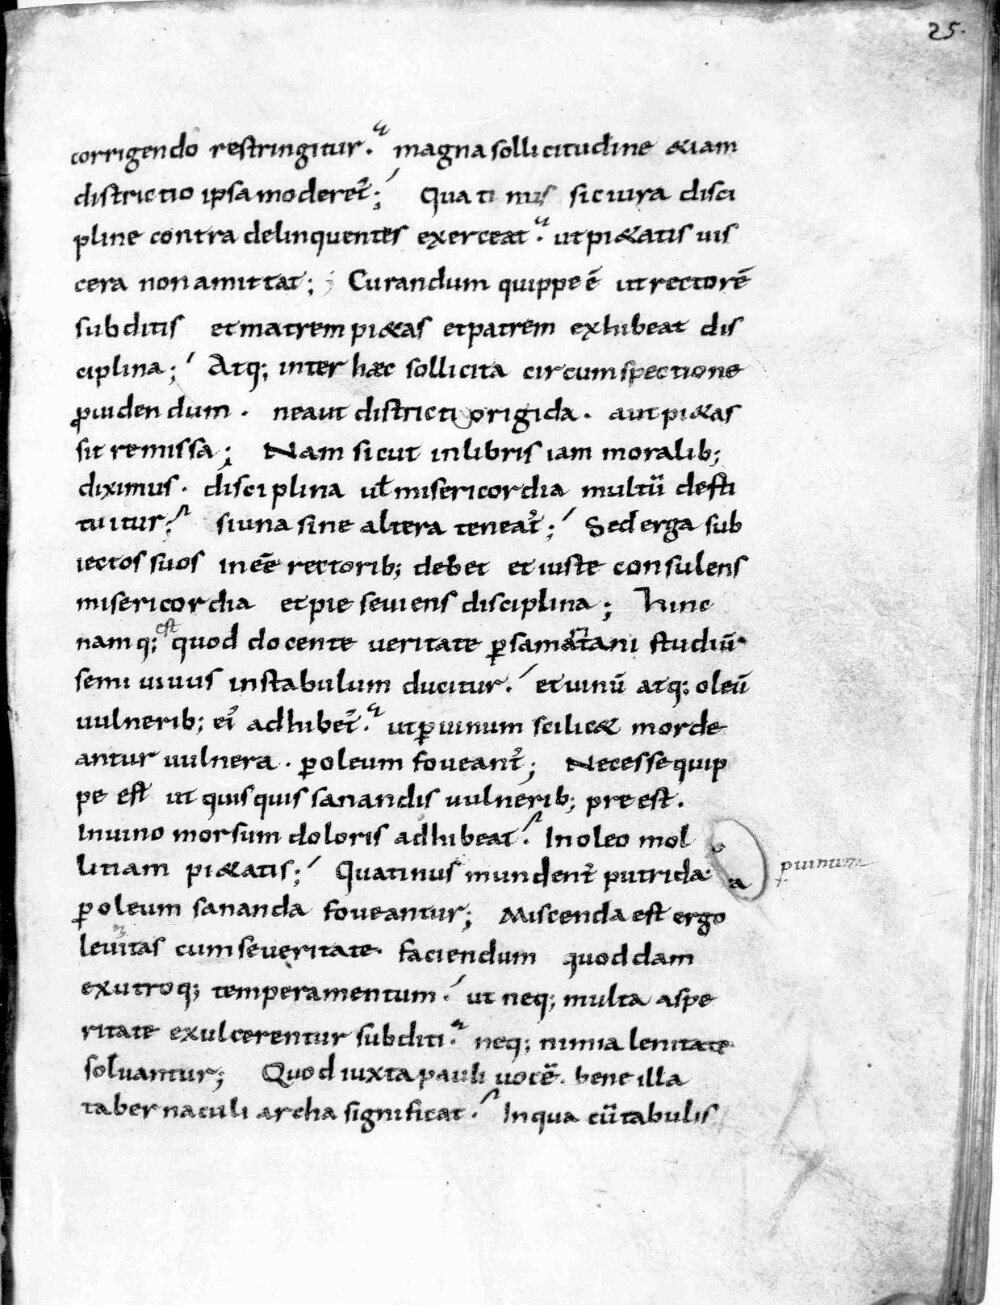 25.
corrigendo restringitur. magna sollicitudine &iam
districtio ipsa moderet̃; Quatinus sic iura disci
pline contra delinquentes exerceat. ut pi&atis uis
cera non amittat; Curandum quippe ē ut rectorē
subditis et matrem pi&as et patrem exhibeat dis
ciplina; Atq; inter hæc sollicita circumspectione
ꝓuidendum. ne aut districtio rigida. aut pi&as
sit remissa; Nam sicut in libris iam moralib;
diximus. disciplina uƚ misericordia multū desti
tuitur. si una sine altera teneat̃; Sed erga sub
iectos suos inēe rectorib; debet et iuste consulens
misericordia et pie seuiens disciplina; Hinc
namq; est quod docente ueritate ꝑ samaritani studiū
semiuiuus in stabulum ducitur. et uinū atq; oleū
uulnerib; ei adhibet̃. ut ꝑ uinum scilic& morde
antur uulnera. ꝑ oleum foueant̃; Necesse quip
pe est ut quisquis sanandis uulnerib; preest.
In uino morsum doloris adhibeat. In oleo mol
litiam pi&atis; Quatinus mundent̃ putrida
ꝑ uinum
ꝑ oleum sananda foueantur; Miscenda est ergo
leuitas cum seueritate. faciendum quoddam
ex utroq; temperamentum. ut neq; multa aspe
ritate exulcerentur subditi. neq; nimia lenitate
soluantur; Quod iuxta pauli uocē. bene illa
tabernaculi archa significat. In qua cū tabulis